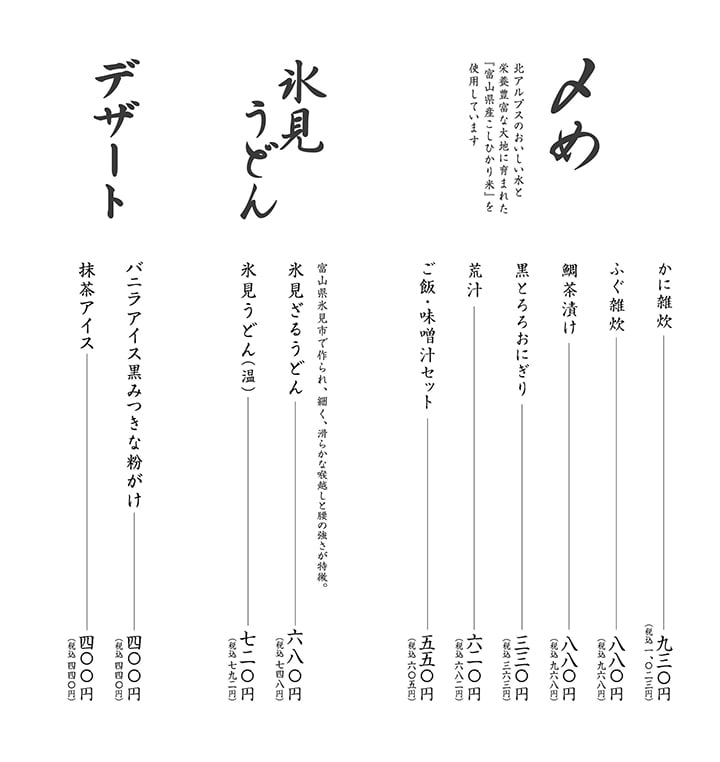 〆め
北アルプスのおいしい水と
栄養豊富な大地に育まれた
『富山県産こしひかり米』を
使用しています
かに雑炊 九三〇円
(税込 一、〇二三円)
ふぐ雑炊 八八〇円
(税込 九六八円)
鯛茶漬け 八八〇円
(税込 九六八円)
黒とろろおにぎり 三三〇円
(税込 三六三円)
荒汁 六二〇円
(税込 六八二円)
ご飯・味噌汁セット 五五〇円
(税込 六〇五円)
氷見
うどん
富山県氷見市で作られ、細く、滑らかな喉越しと腰の強さが特徴。
氷見ざるうどん 六八〇円
(税込 七四八円)
氷見うどん(温) 七二〇円
(税込 七九二円)
デザート
バニラアイス黒みつきな粉がけ 四〇〇円
(税込 四四〇円)
抹茶アイス 四〇〇円
(税込 四四〇円)